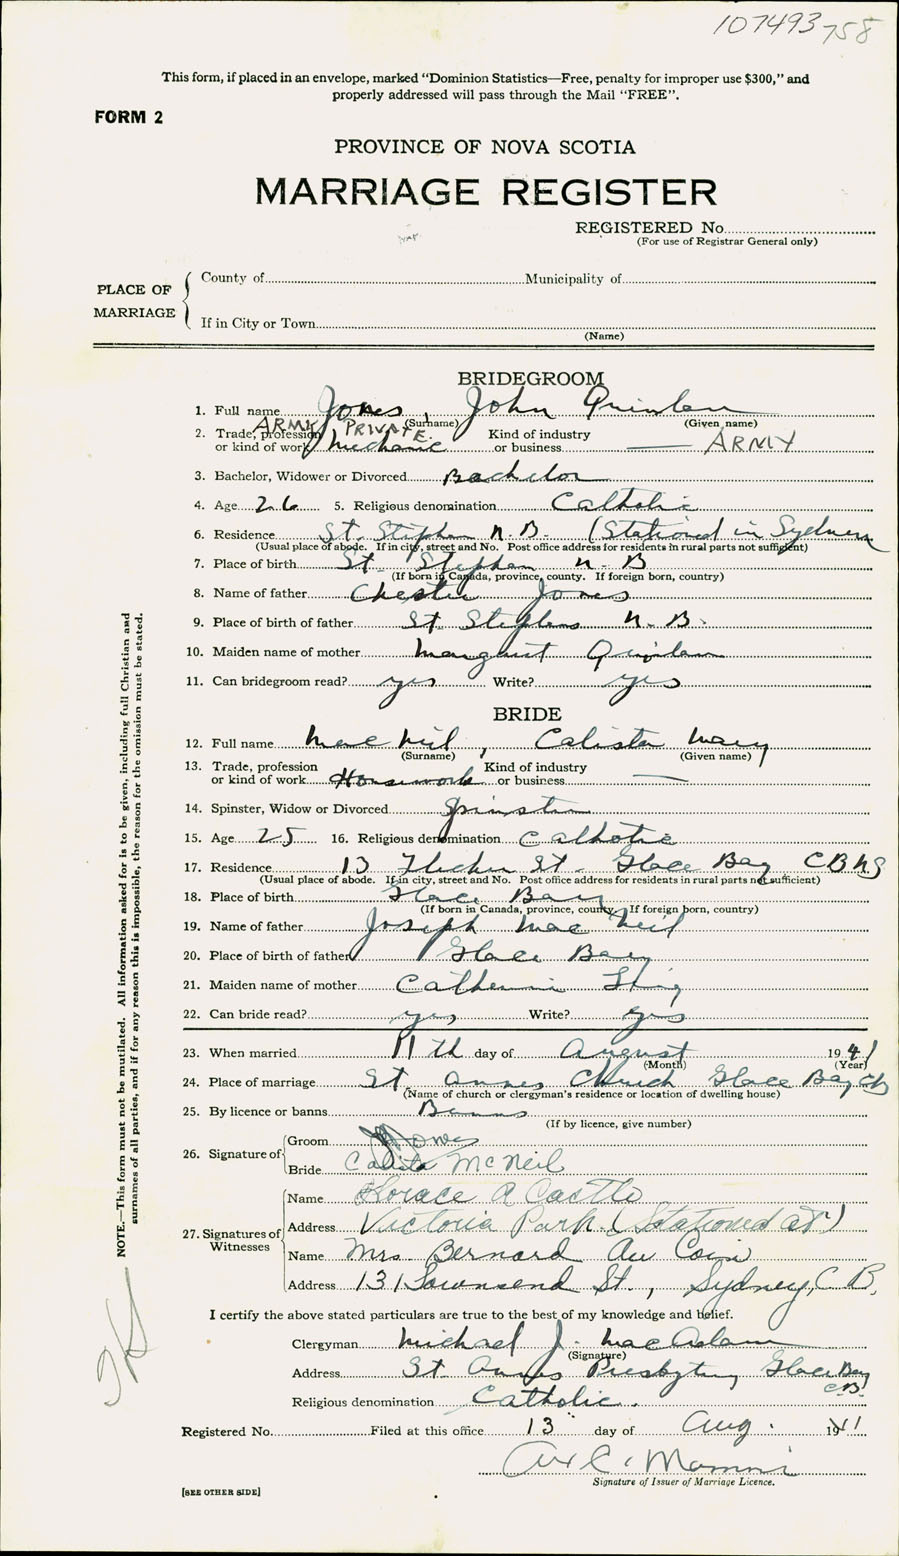 107493 758
This form, if placed in an envelope, marked "Dominion Statistics—Free, penalty for improper use $300," and
properly addressed will pass through the Mail "FREE".
FORM 2
PROVINCE OF NOVA SCOTIA
MARRIAGE REGISTER
REGISTERED No.
(For use of Registrar General only)
PLACE OF MARRIAGE
County of Municipality of
If in City or Town
(Name)
BRIDEGROOM
1. Full name Jones, John Quinlan
(Surname) (Given name)
ARMY PRIVATE
2. Trade, profession or kind of work Mechanic Kind of industry or business — ARMY
3. Bachelor, Widower or Divorced Bachelor
4. Age 26 5. Religious denomination Catholic
6. Residence St. Stephen N.B. (Stationed in Sydney
(Usual place of abode. If in city, street and No. Post office address for residents in rural parts not sufficient)
7. Place of birth St. Stephen N.B
(If born in Canada, province, county. If foreign born, country)
8. Name of father Chester Jones
9. Place of birth of father St. Stephens N.B.
10. Maiden name of mother Margaret Quinlan
11. Can bridegroom read? yes Write? yes
BRIDE
12. Full name MacNeil, Calista Mary
(Surname) (Given name)
13. Trade, profession or kind of work Housework Kind of industry or business —
14. Spinster, Widow or Divorced Spinster
15. Age 25 16. Religious denomination Catholic
17. Residence 13 St. Glace Bay CBNS
(Usual place of abode. If in city, street and No. Post office address for residents in rural parts not sufficient)
18. Place of birth Glace Bay
(If born in Canada, province, county. If foreign born, country)
19. Name of father Joseph MacNeil
20. Place of birth of father Glace Bay
21. Maiden name of mother Catherine
22. Can bride read? yes Write? yes
23. When married 11th day of August 1941
(Month) (Year)
24. Place of marriage St. Annes Church Glace Bay CB
(Name of church or clergyman's residence or location of dwelling house)
25. By licence or banns Banns
(If by licence, give number)
26. Signature of Groom Jones
Bride Calista McNeil
27. Signatures of Witnesses
Name Horace R Castle
Address Victoria Park. (Stationed at)
Name Mrs. Bernard Au Coin
Address 131 Townsend St., Sydney, C.B.
I certify the above stated particulars are true to the best of my knowledge and belief.
Clergyman Michael J. MacAdam
(Signature)
Address St. Annes Presbytery Glace Bay
C.B.
Religious denomination Catholic.
Registered No. Filed at this office 13 day of Aug. 1941
Signature of Issuer of Marriage Licence.
[SEE OTHER SIDE]
NOTE.—This form must not be mutilated. All information asked for is to be given, including full Christian and
surnames of all parties, and if for any reason this is impossible, the reason for the omission must be stated.